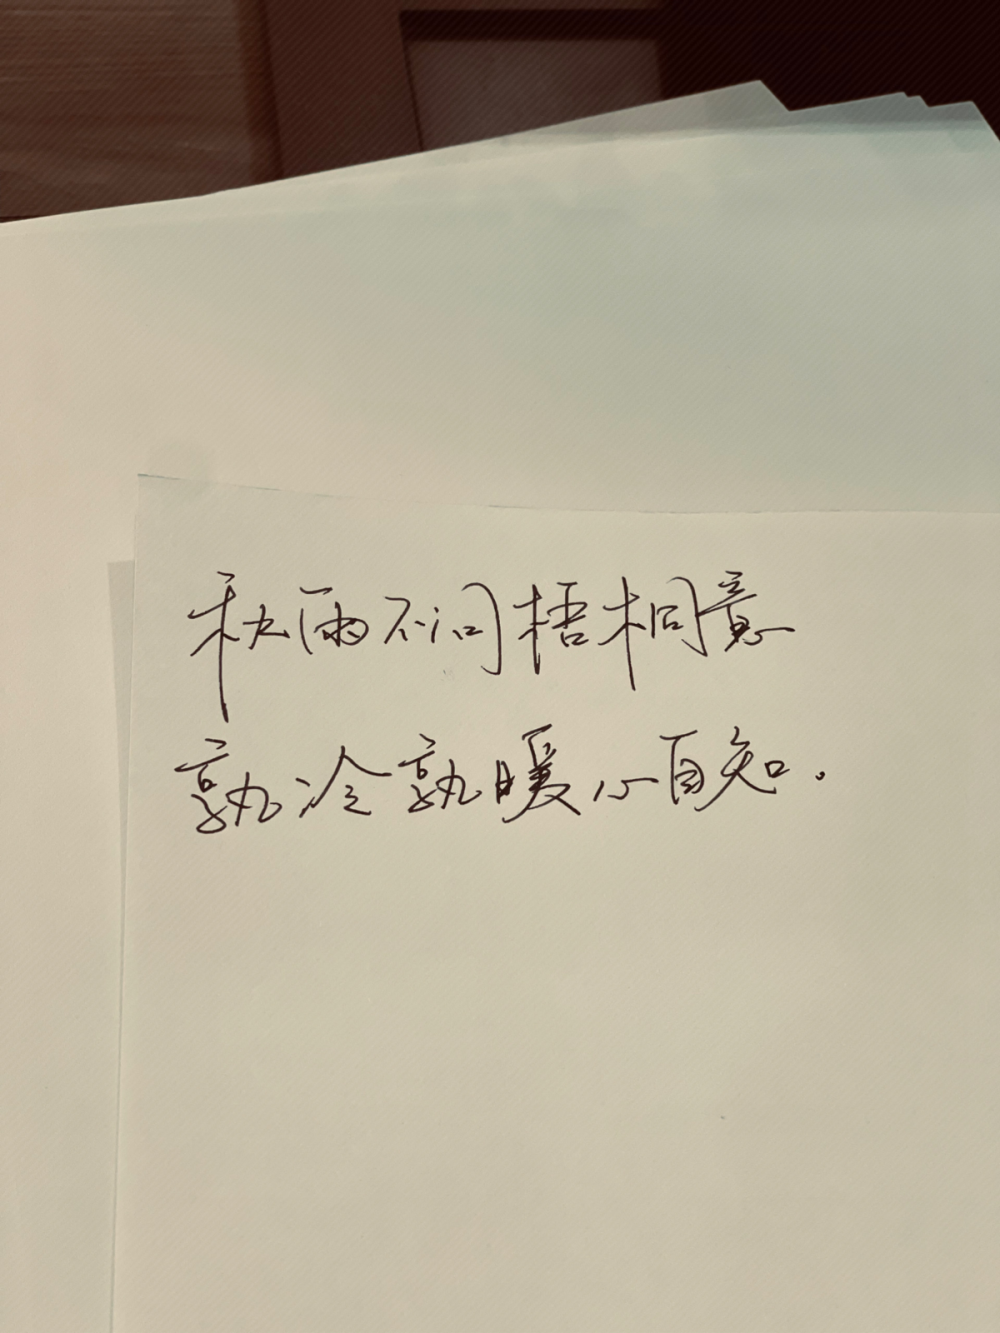 秋雨不问梧桐意
孰冷孰暖心自知.